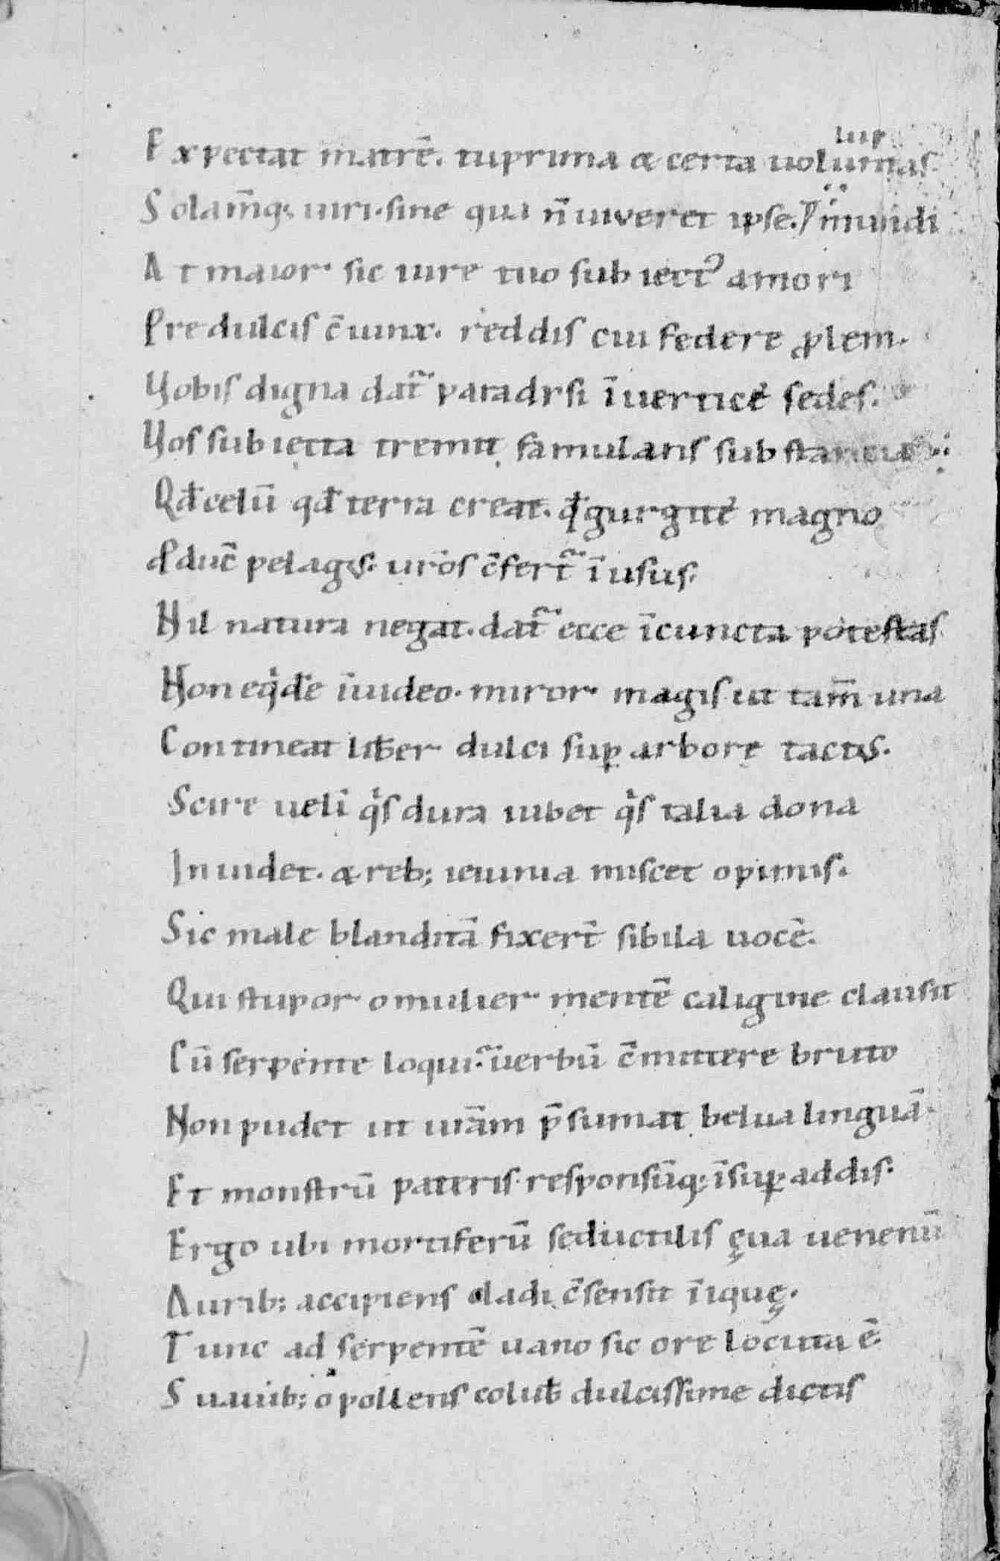 lup
Expectat matrē. tu prima & certa uolumtas.
Solam̄q; uiri. sine qua n̄ uiveret ipse. mundi
At maior sic iure tuo subiectꝰ amori
Predulcis c̄iunx. reddis cui federe ꝓlem.
Vobis digna dat᷑ paradysi ī uerticē sedes.
Vos subiecta tremit famulans substantia
Qđ celū qđ terra creat. qđ gurgitē magno
Ꝓducˉ pelagꝰ. ur̄os c̄fert᷑ ī usus.
Nil natura negat. dat᷑ ecce īcuncta potestas
Non eq̇dē īuideo. miror magis ut tam̄ una
Contineat lib̄er dulci suꝑ arbore tactꝰ.
Scire uelī q̇s dura iubet q̇s talia dona
Inuidet. & reb; ieiunia miscet opimis.
Sic male blanditā fixert̄ sibila uocē.
Qui stupor o mulier mentē caligine clausit
Cū serpente loqui. uerbū c̄mittere bruto
Non pudet ut ur̄am p̄sumat belua linguā.
Et monstrū pateris. responsūq; īsuꝑ addis.
Ergo ubi mortiferū seductilis ęua uenenū
Aurib; accipiens cladi c̄sensit īiquę.
Tunc ad serpentē uano sic ore locuta ē
Suauib; o pollens colub̄ dulcissime dictis